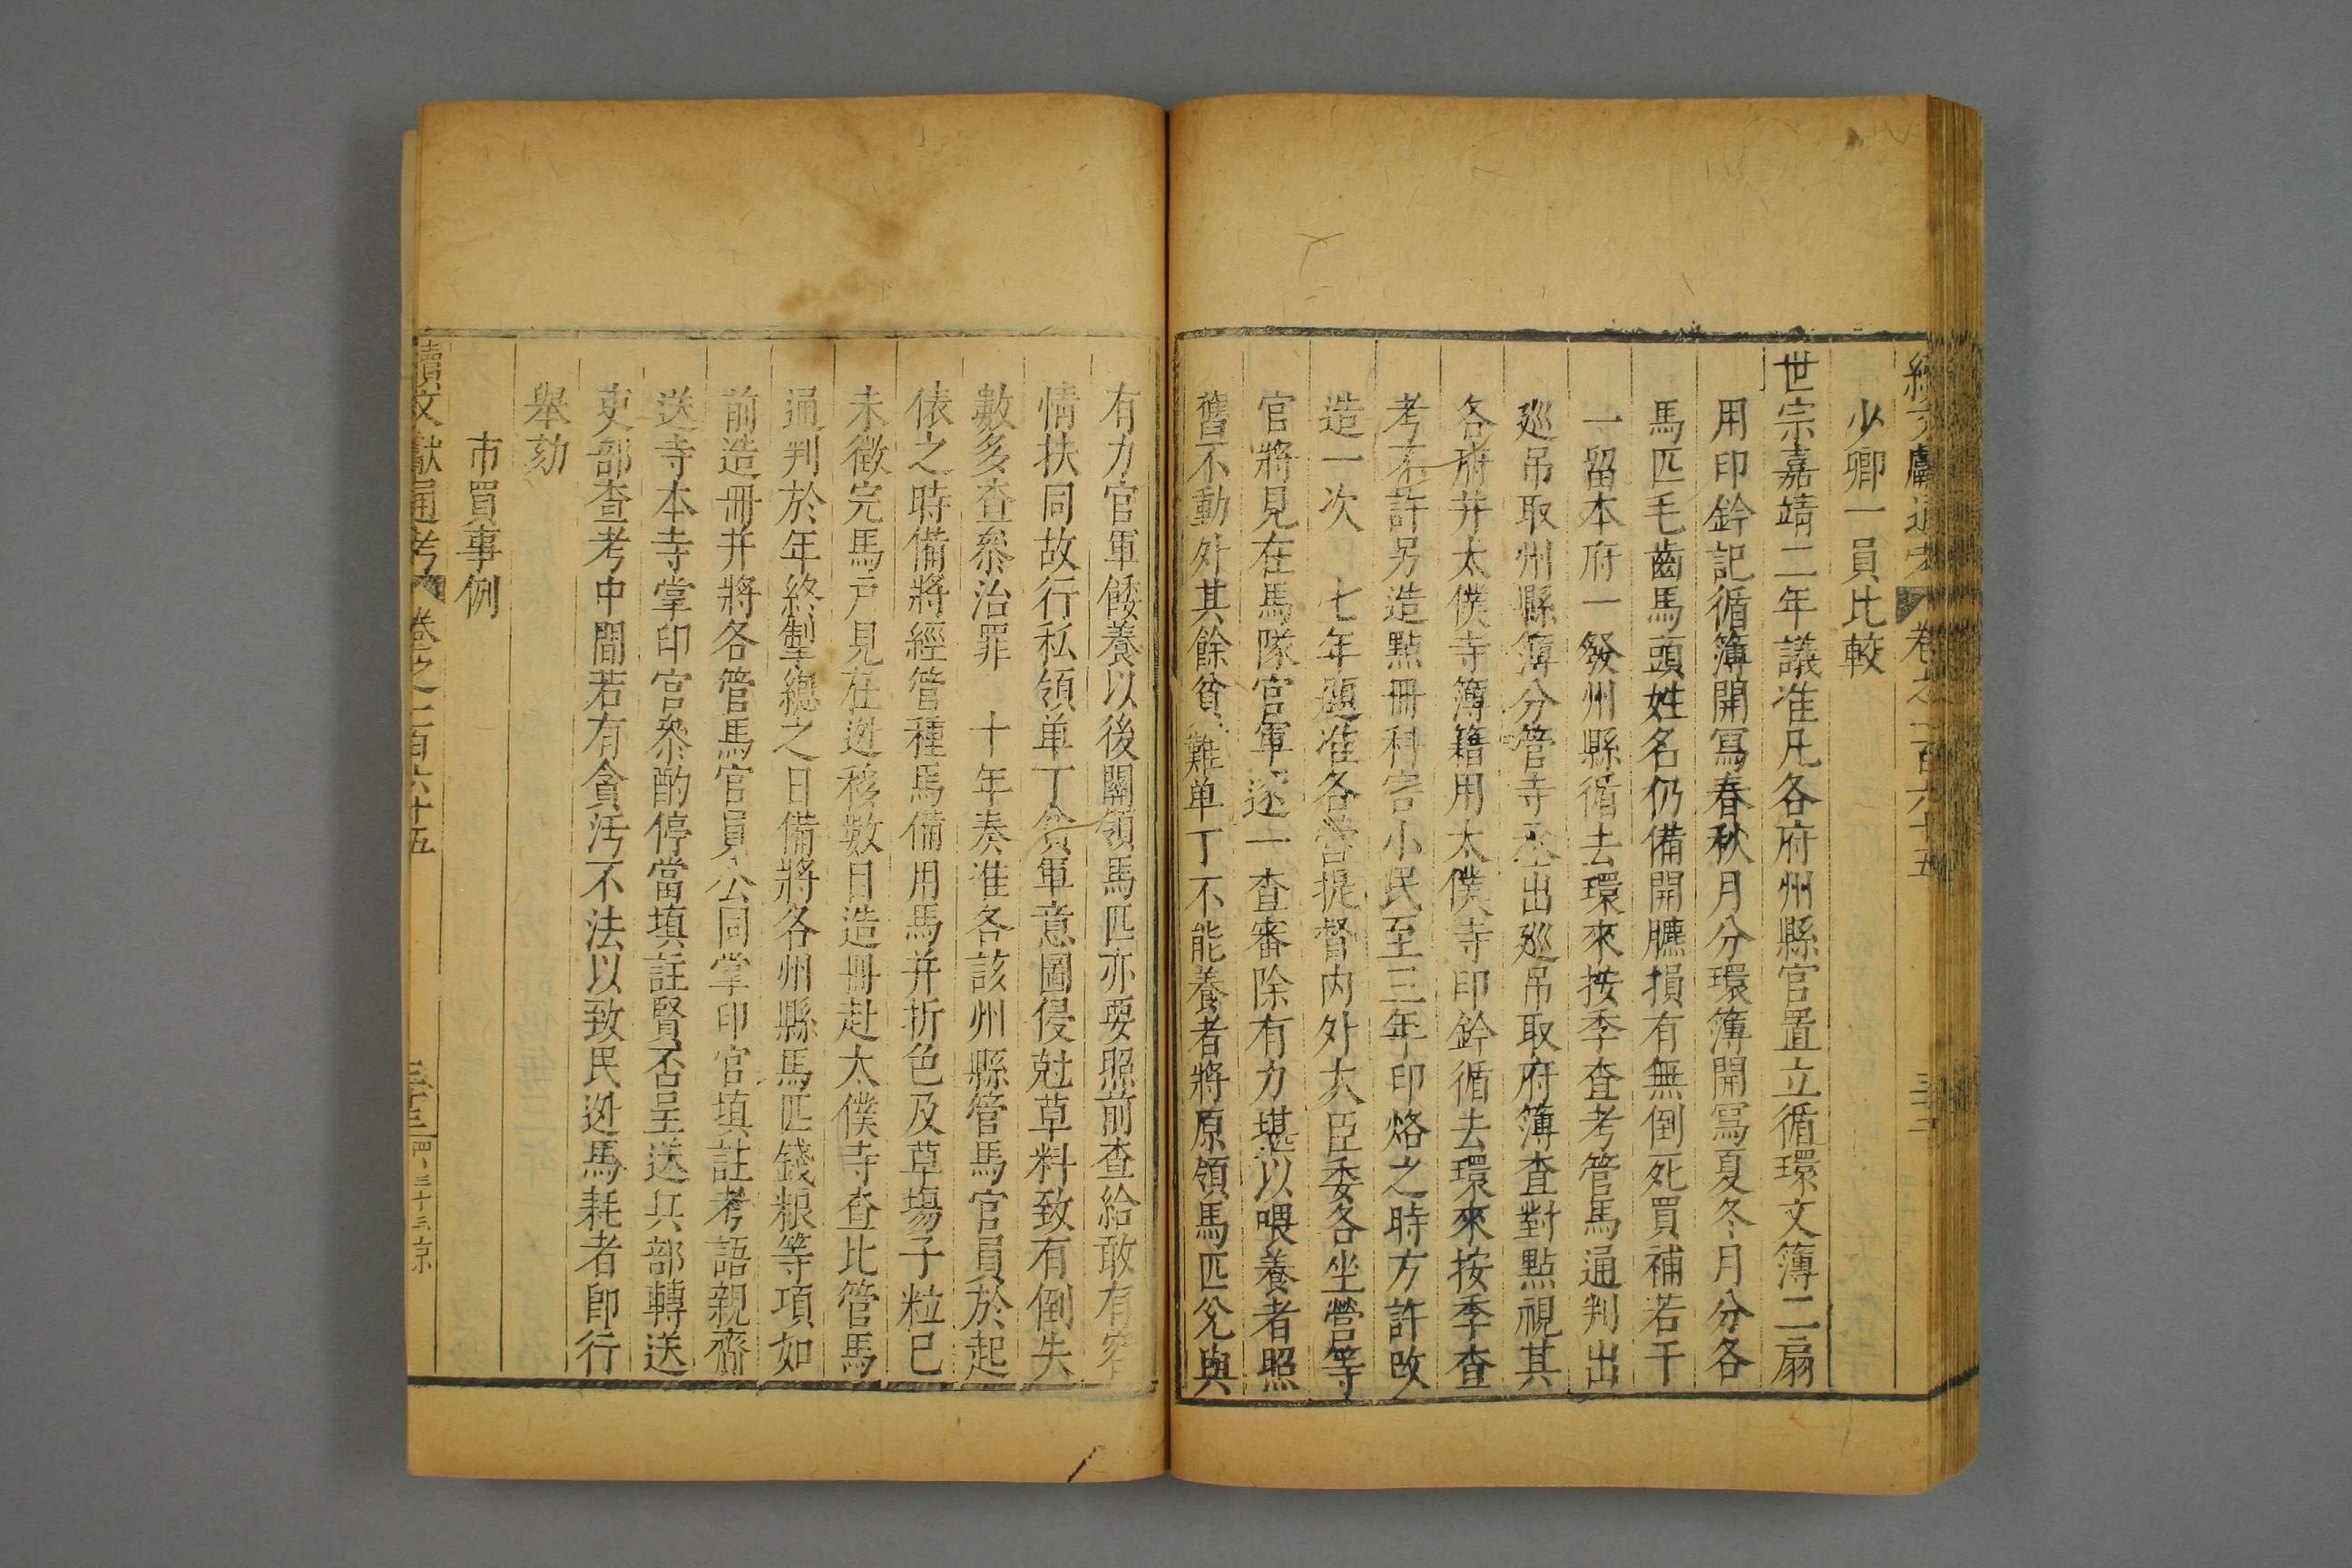 續文獻通考 卷之一百六十五 三十三
少卿一員比較
世宗嘉靖二年議准凡各府州縣官置立循環文簿二扇
用印鈐記循簿開寫春秋月分環簿開寫夏冬月分各
馬匹毛齒馬頭姓名仍備開臕損有無倒死買補若干
一留本府一發州縣循去環來按季查考管馬通判出
廵吊取州縣簿分管寺丞出廵吊取府簿查對點視其
各府并太僕寺簿籍用太僕寺印鈐循去環來按季查
考不許另造點冊科害小民至三年印烙之時方許改
造一次 七年題准各營提督内外大臣委各坐營等
官將見在馬隊官軍逐一查審除有力堪以喂養者照
舊不動外其餘貧難单丁不能養者將原領馬匹兊與
有力官軍餧養以後關領馬匹亦要照前查給敢有容
情扶同故行私領单丁貧軍意圖侵尅草料致有倒失
數多查叅治罪 十年奏准各該州縣管馬官員於起
俵之時備將經管種馬備用馬并折色及草塲子粒已
未徵完馬戸見在逃移數目造冊赴太僕寺查比管馬
通判於年終掣總之日備將各州縣馬匹錢粮等項如
前造冊并將各管馬官員公同掌印官填註考語親齎
送寺本寺掌印官叅酌停當填註賢否呈送兵部轉送
吏部查考中間若有貪汚不法以致民逃馬耗者即行
舉劾
市買事例
續文獻通考 卷之一百六十五 三十三 四、三十三 京